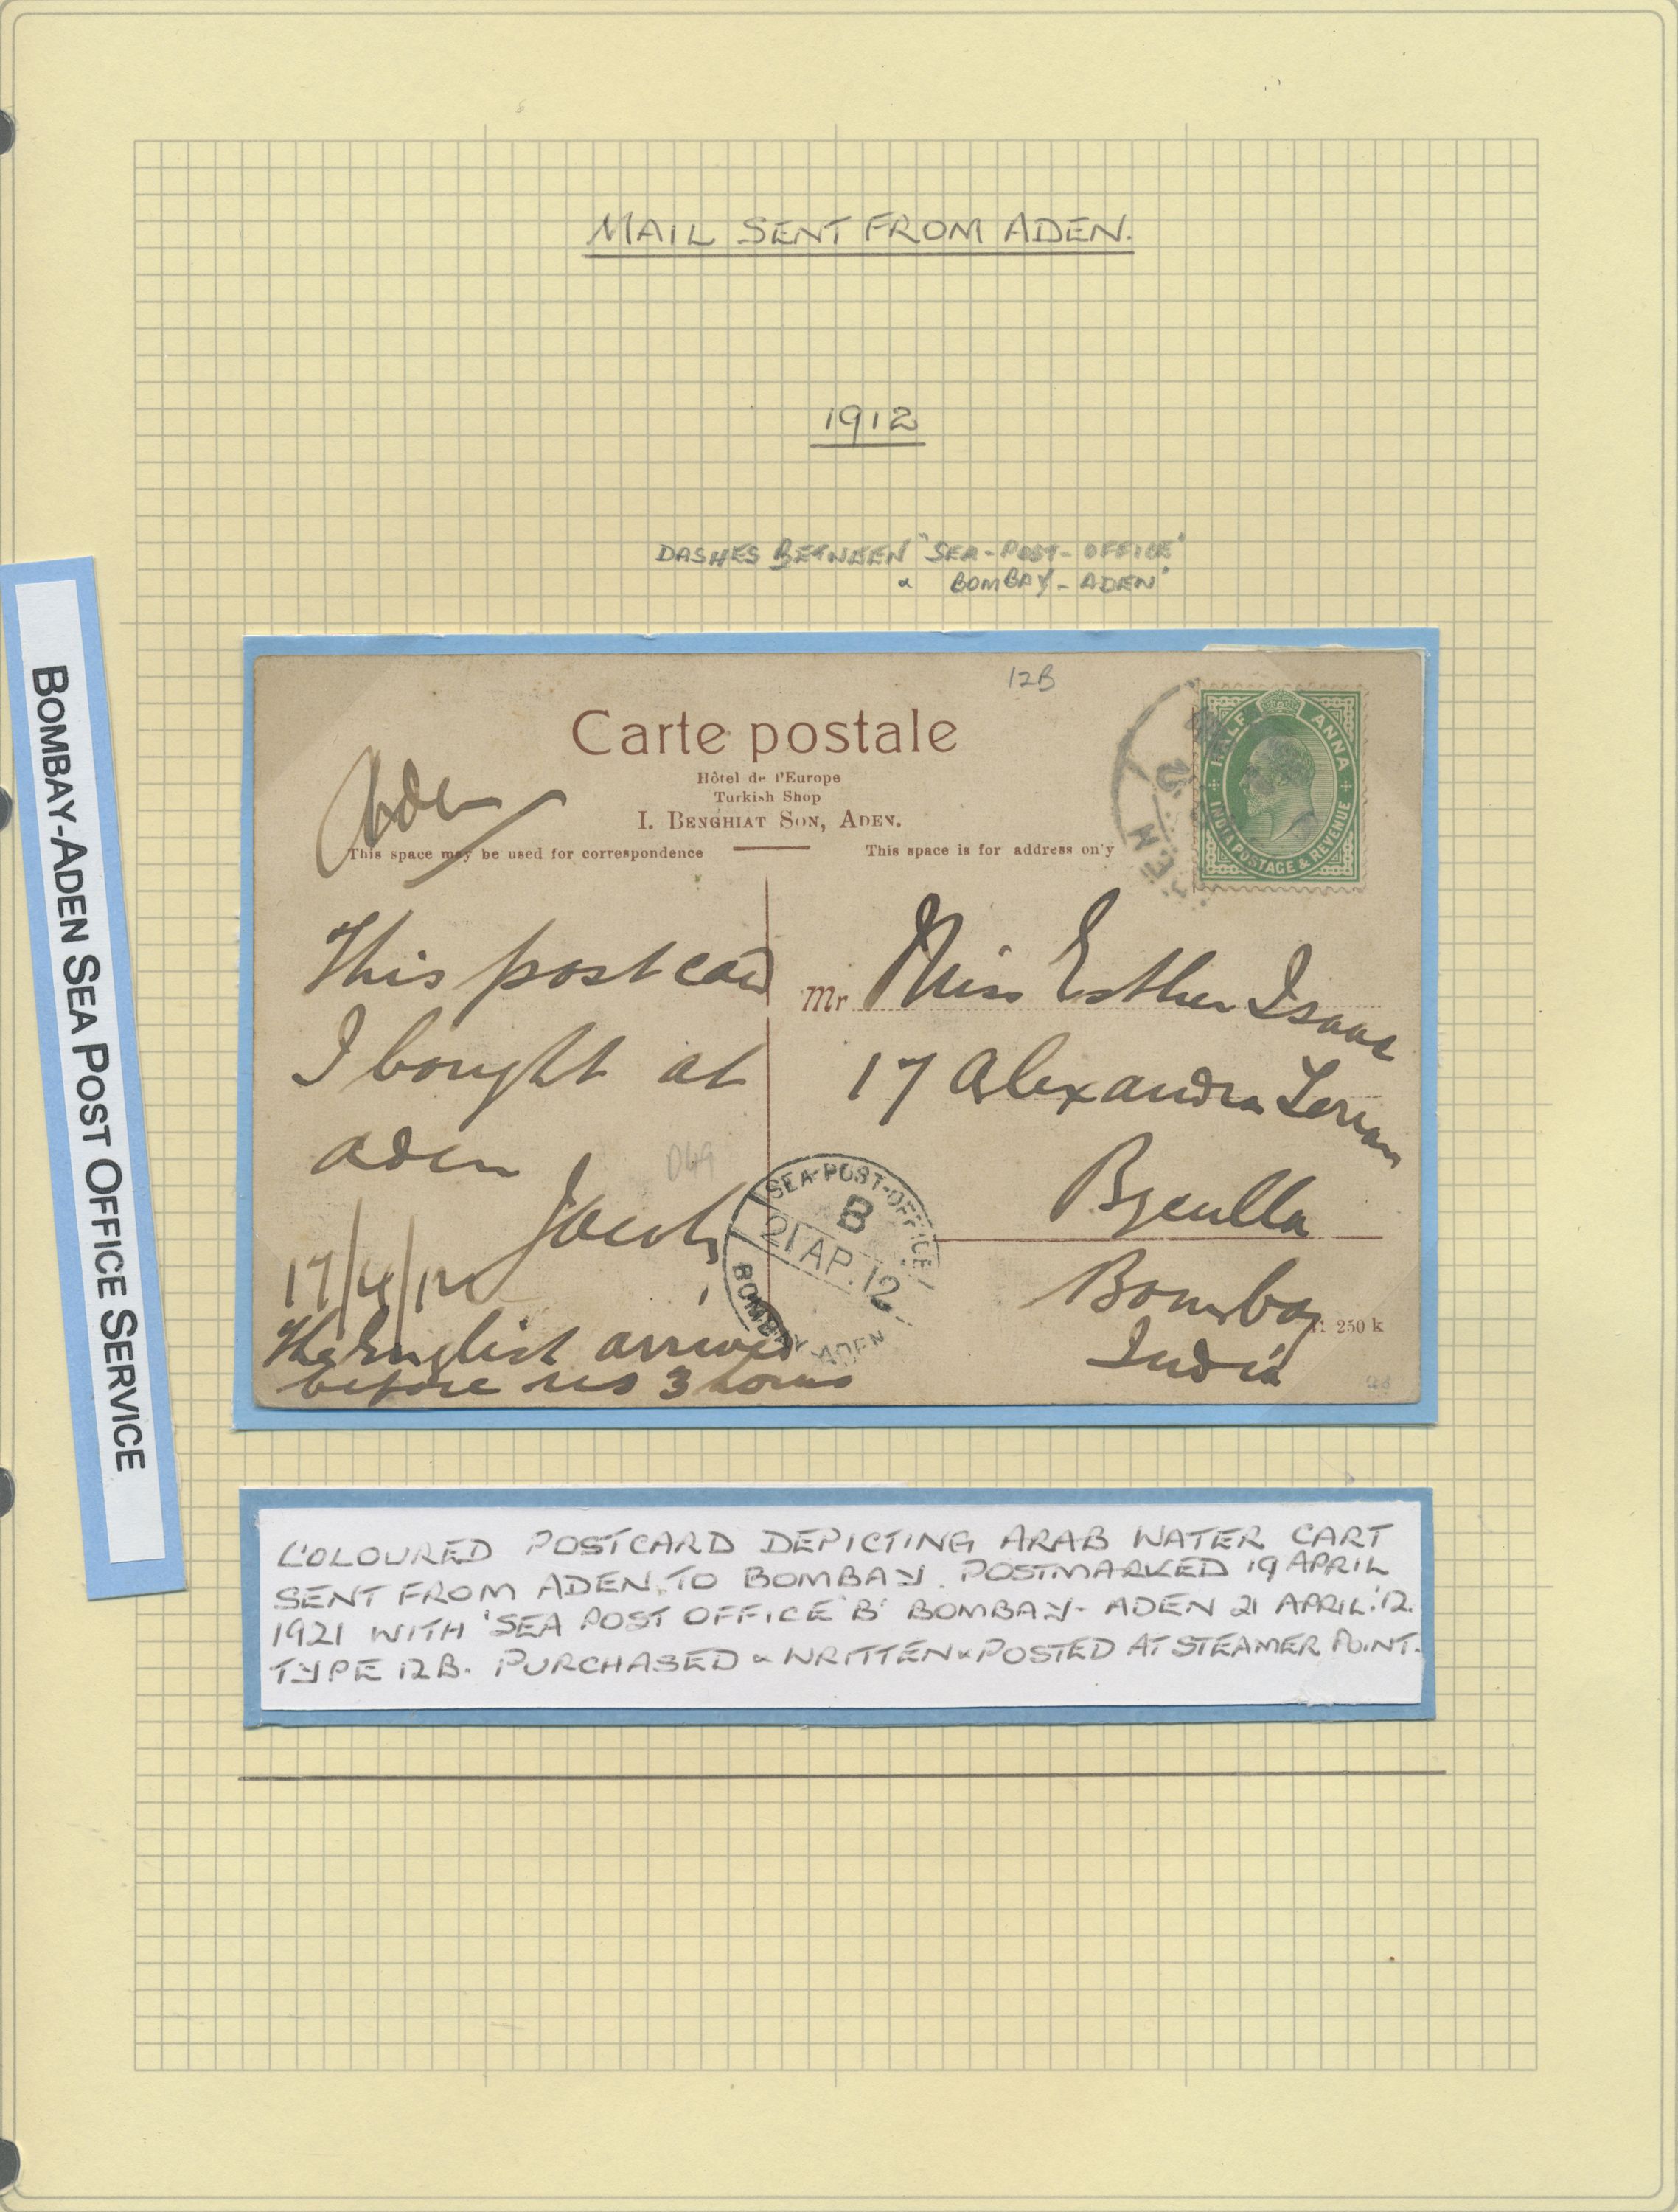 MAIL SENT FROM ADEN.
1912
DASHES BETWEEN "SEA-POST-OFFICE'
& BOMBAY-ADEN'
BOMBAY-ADEN SEA POST OFFICE SERVICE
12B
Carte postale
Hôtel de l'Europe
Turkish Shop
I. BENGHIAT SON, ADEN.
Aden
This space may be used for correspondence
This space is for address only
HALF ANNA
INDIA POSTAGE & REVENUE
This post card
I bought at
aden
Jacob
17/4/12
The English arrived
before us 3 hours
Mr Miss Esther Isaac
17 Alexandra Terran
Byculla
Bombay
India
250 k
SEA-POST-OFFICE
B
21 AP. 12
BOMBAY-ADEN
COLOURED POSTCARD DEPICTING ARAB WATER CART
SENT FROM ADEN. TO BOMBAY. POSTMARKED 19 APRIL
1921 WITH 'SEA POST OFFICE 'B' BOMBAY- ADEN 21 APRIL.'12.
TYPE 12B. PURCHASED & WRITTEN & POSTED AT STEAMER POINT.